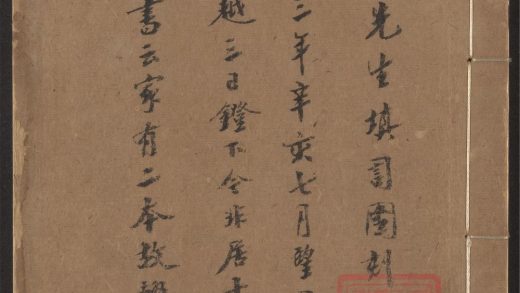 先生填詞圖刻
三年辛亥七月望
越三日鐙下令非居士
書云家有二本故